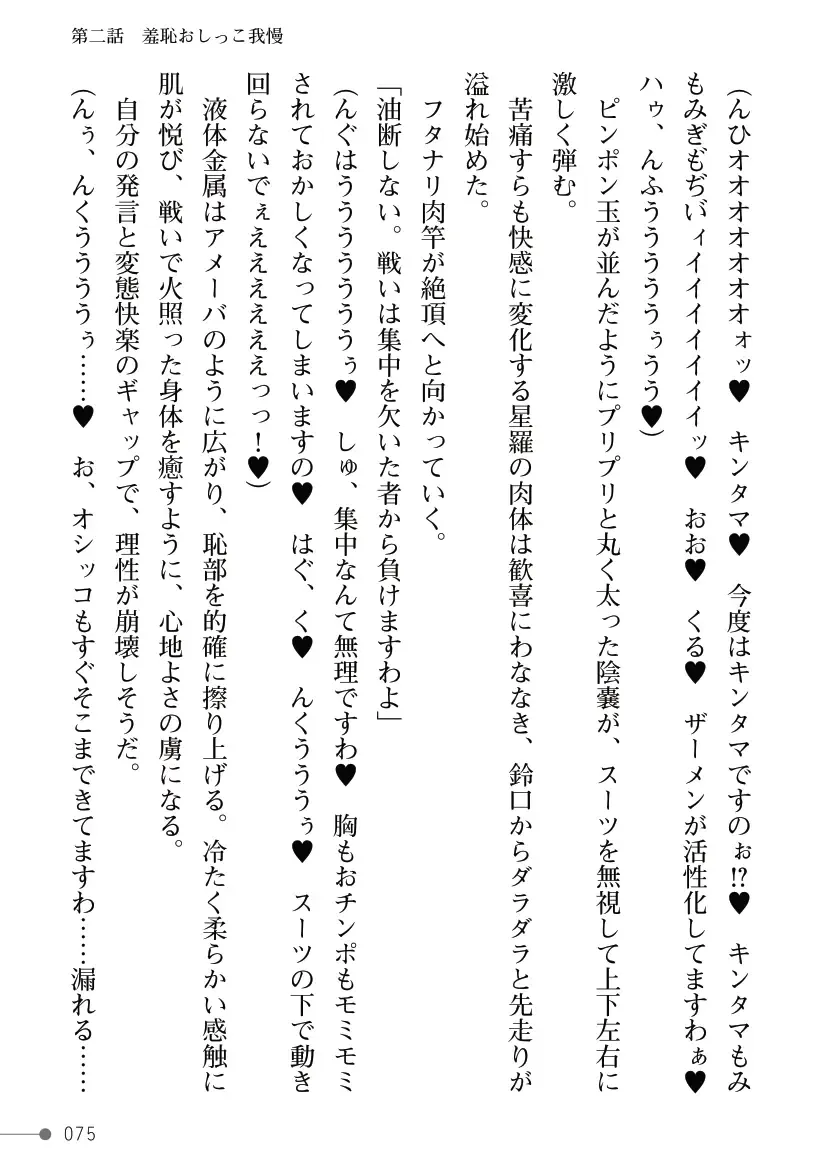 第二話　羞恥おしっこ我慢
(んひオオオオオオオォッ♥　キンタマ♥　今度はキンタマですのぉ!?♥　キンタマもみ
もみぎもぢいィイイイイイイイッ♥　おお♥　くる♥　ザーメンが活性化してますわぁ♥
ハゥ、んふうううううぅうう♥)
　ピンポン玉が並んだようにプリプリと丸く太った陰嚢が、スーツを無視して上下左右に
激しく弾む。
　苦痛すらも快感に変化する星羅の肉体は歓喜にわななき、鈴口からダラダラと先走りが
溢れ始めた。
　フタナリ肉竿が絶頂へと向かっていく。
「油断しない。戦いは集中を欠いた者から負けますわよ」
(んぐはうううううううぅ♥　しゅ、集中なんて無理ですわ♥　胸もおチンポもモミモミ
されておかしくなってしまいますの♥　はぐ、く♥　んくうううぅ♥　スーツの下で動き
回らないでぇえええええええっっ！♥)
　液体金属はアメーバのように広がり、恥部を的確に擦り上げる。冷たく柔らかい感触に
肌が悦び、戦いで火照った身体を癒すように、心地よさの虜になる。
　自分の発言と変態快楽のギャップで、理性が崩壊しそうだ。
(んぅ、んくううううぅ……♥　お、オシッコもすぐそこまできてますわ……漏れる……
075